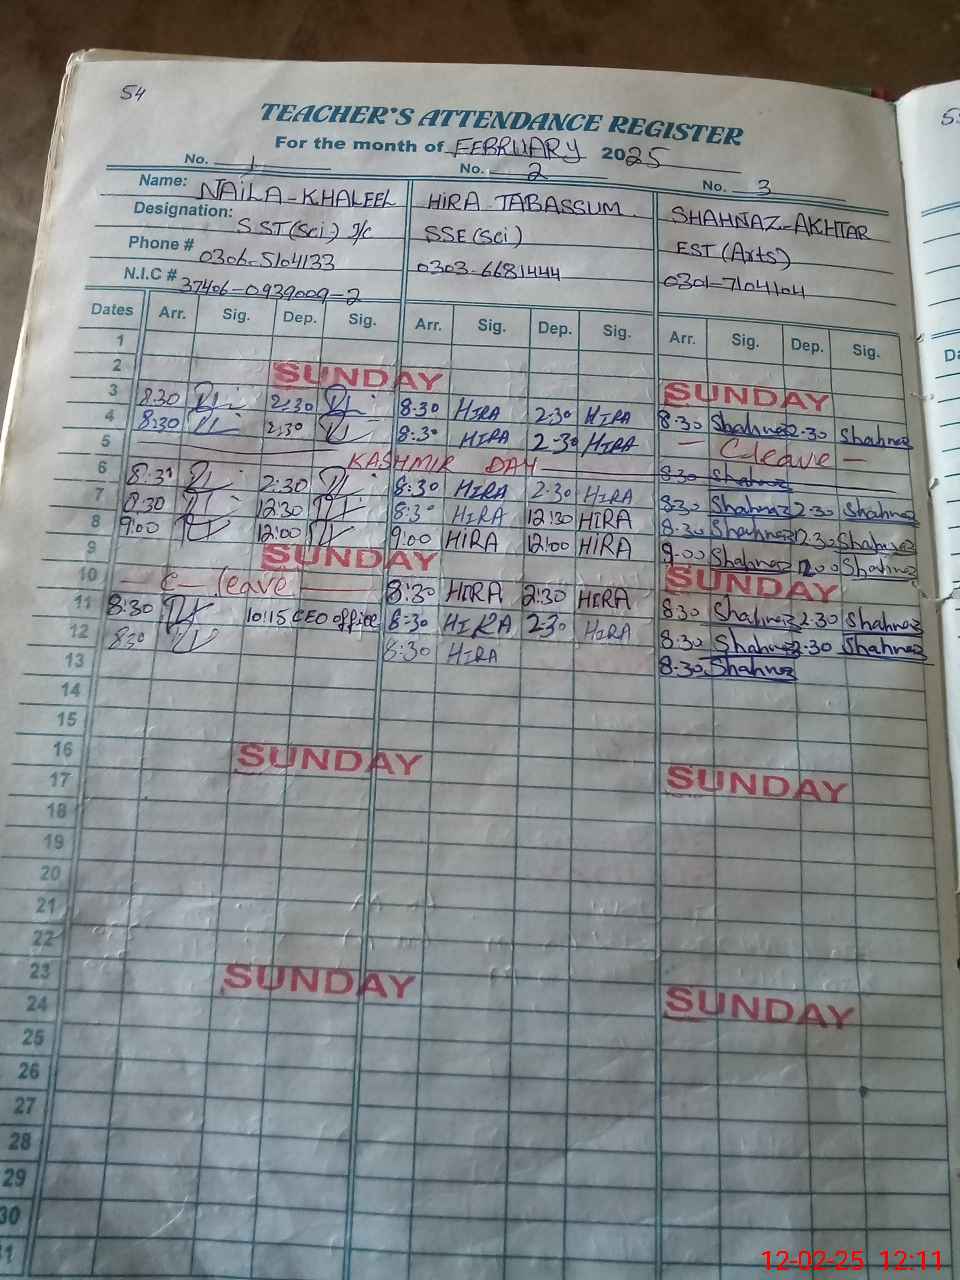 54
TEACHER'S ATTENDANCE REGISTER
For the month of FEBRUARY 2025
No. 1 No. 2 No. 3
Name: NAILA-KHALEEL HIRA TABASSUM. SHAHNAZ-AKHTAR
Designation: SST(Sci) I/C SSE(Sci) EST(Arts)
Phone # 0306-5104133 0303-6681444 0301-7104104
N.I.C # 37406-0939009-2
Dates Arr. Sig. Dep. Sig. Arr. Sig. Dep. Sig. Arr. Sig. Dep. Sig.
1
2 SUNDAY SUNDAY
3 8.30 2:30 8:30 HIRA 2:30 HIRA 8:30 Shahnaz 2.30 Shahnaz
4 8:30 2:30 8:30 HIRA 2:30 HIRA - C leave -
5 KASHMIR DAY 8:30 Shahnaz
6 8:30 2:30 8:30 HIRA 2:30 HIRA 8:30 Shahnaz 2.30 Shahnaz
7 8:30 12:30 8:30 HIRA 12:30 HIRA 8:30 Shahnaz 12.30 Shahnaz
8 9:00 12:00 9:00 HIRA 12:00 HIRA 9-00 Shahnaz 12.00 Shahnaz
9 SUNDAY SUNDAY
10 - C - leave 8:30 HIRA 2:30 HIRA 8:30 Shahnaz 2.30 Shahnaz
11 8:30 10:15 CEO office 8:30 HIRA 2:30 HIRA 8:30 Shahnaz 2.30 Shahnaz
12 8:30 8:30 HIRA 8.30 Shahnaz
13
14
15
16 SUNDAY SUNDAY
17
18
19
20
21
22
23 SUNDAY SUNDAY
24
25
26
27
28
29
30
12-02-25 12:11